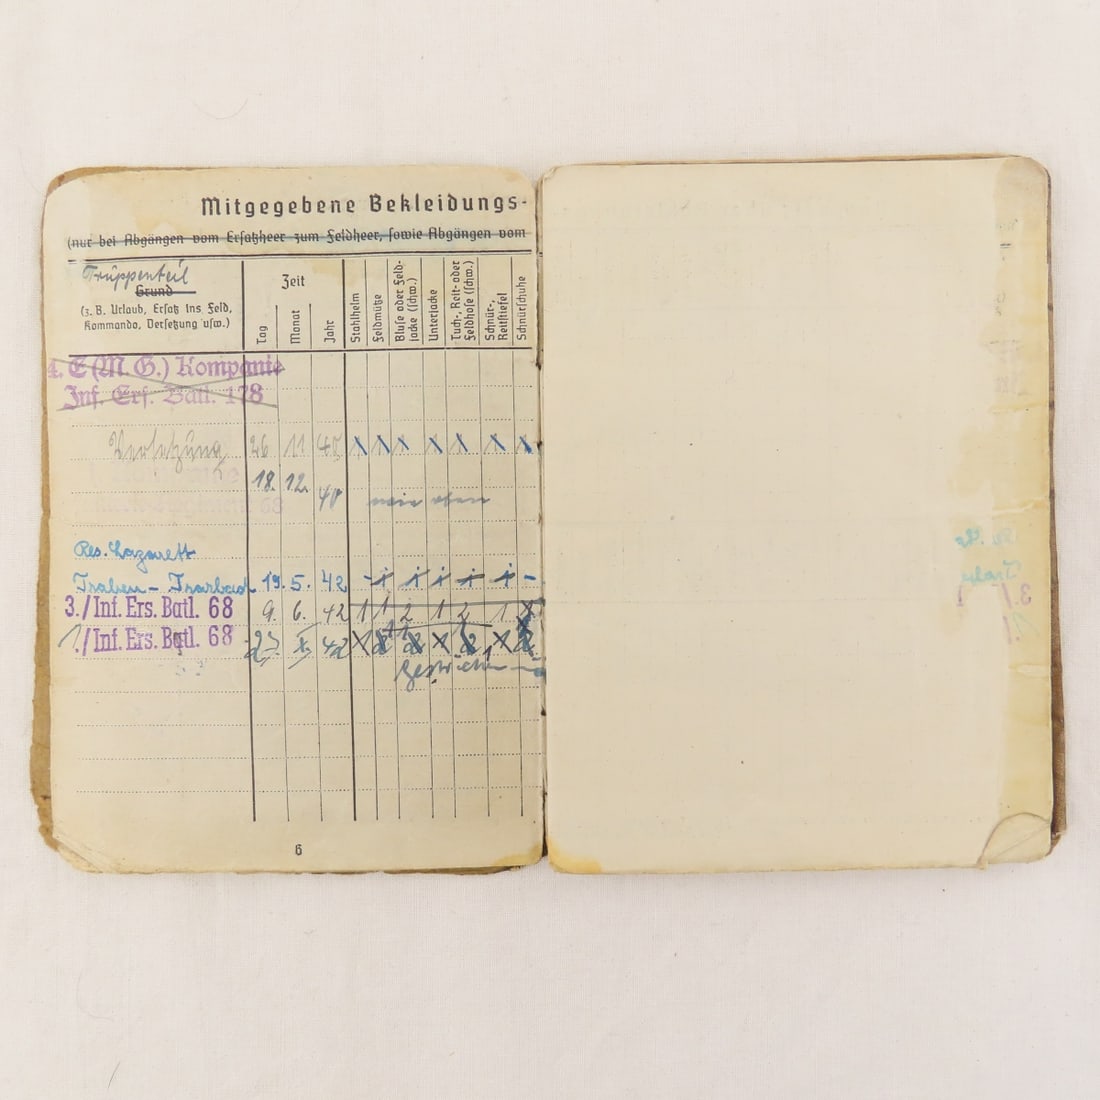 Mitgegebene Bekleidungs-
(nur bei Abgängen vom Ersatzheer zum Feldheer, sowie Abgängen vom
Truppenteil
Grund
(z. B. Urlaub, Ersatz ins Feld,
Kommando, Versetzung usw.)
Zeit
Tag
Monat
Jahr
Stahlhelm
Feldmütze
Bluse oder Feld-
jacke (schw.)
Unterjacke
Tuch-, Reit- oder
Feldhose (schw.)
Schnür-,
Reitstiefel
Schnürschuhe
4. E (M. G.) Kompanie
Inf. Ers. Batl. 178
Versetzung 26 11 40 x x x x x x x
18. 12. 40 wie oben
Res. Lazarett
Traben - Trarbach 19. 5. 42
3./Inf. Ers. Batl. 68 9. 6. 42 1 1 2 1 2 1
1./Inf. Ers. Batl. 68 42
6